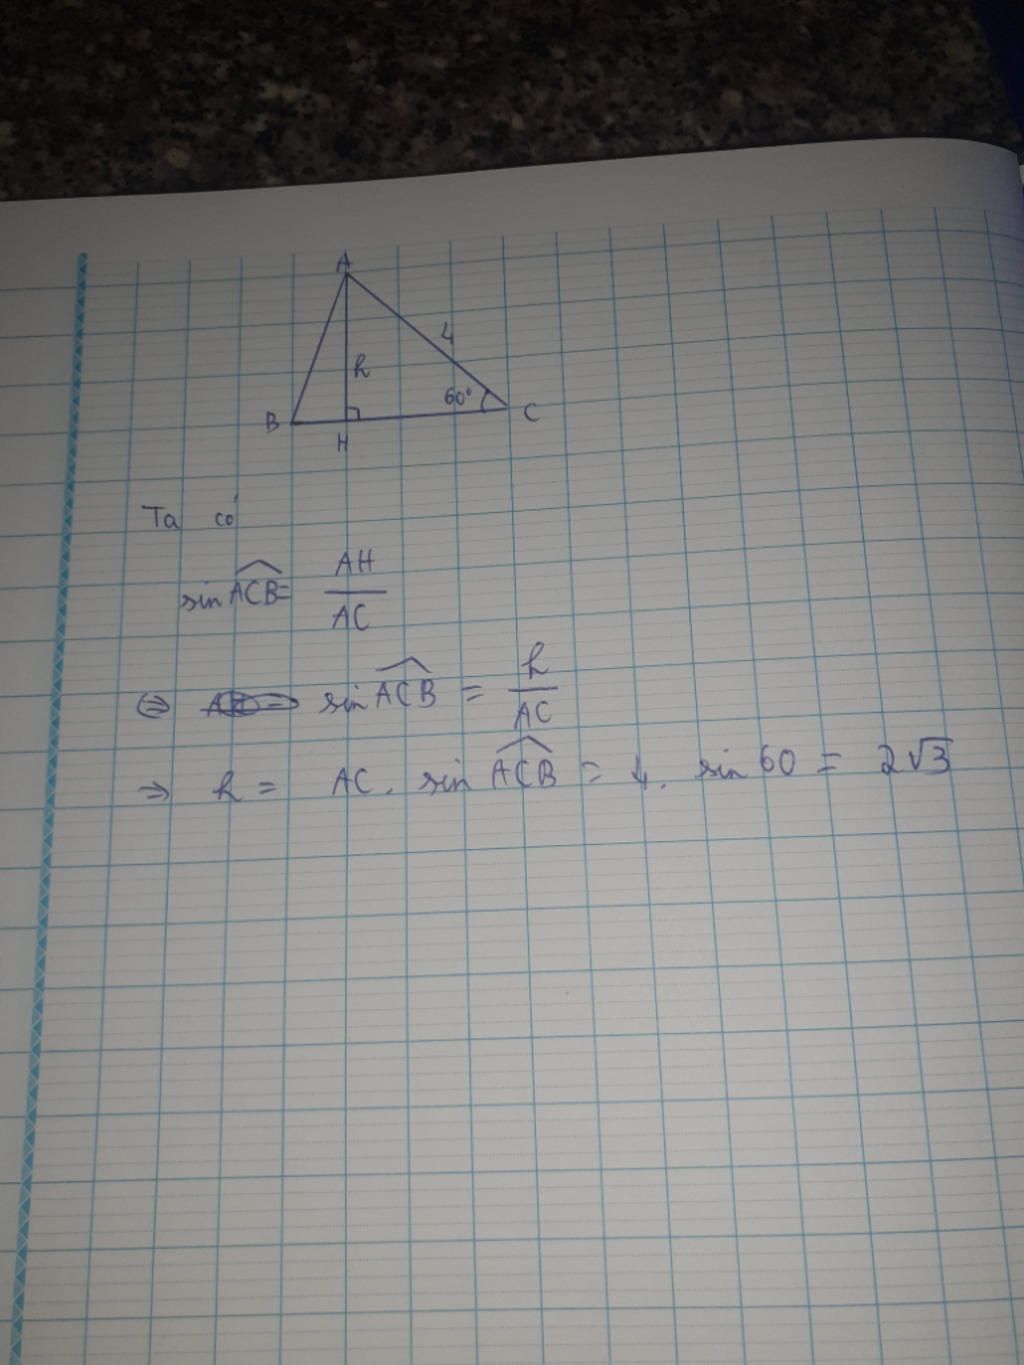 A
4
h
60°
B
C
H
Ta có
sin ACB = AH / AC
⇔ sin ACB = h / AC
⇒ h = AC. sin ACB = 4. sin 60 = 2√3